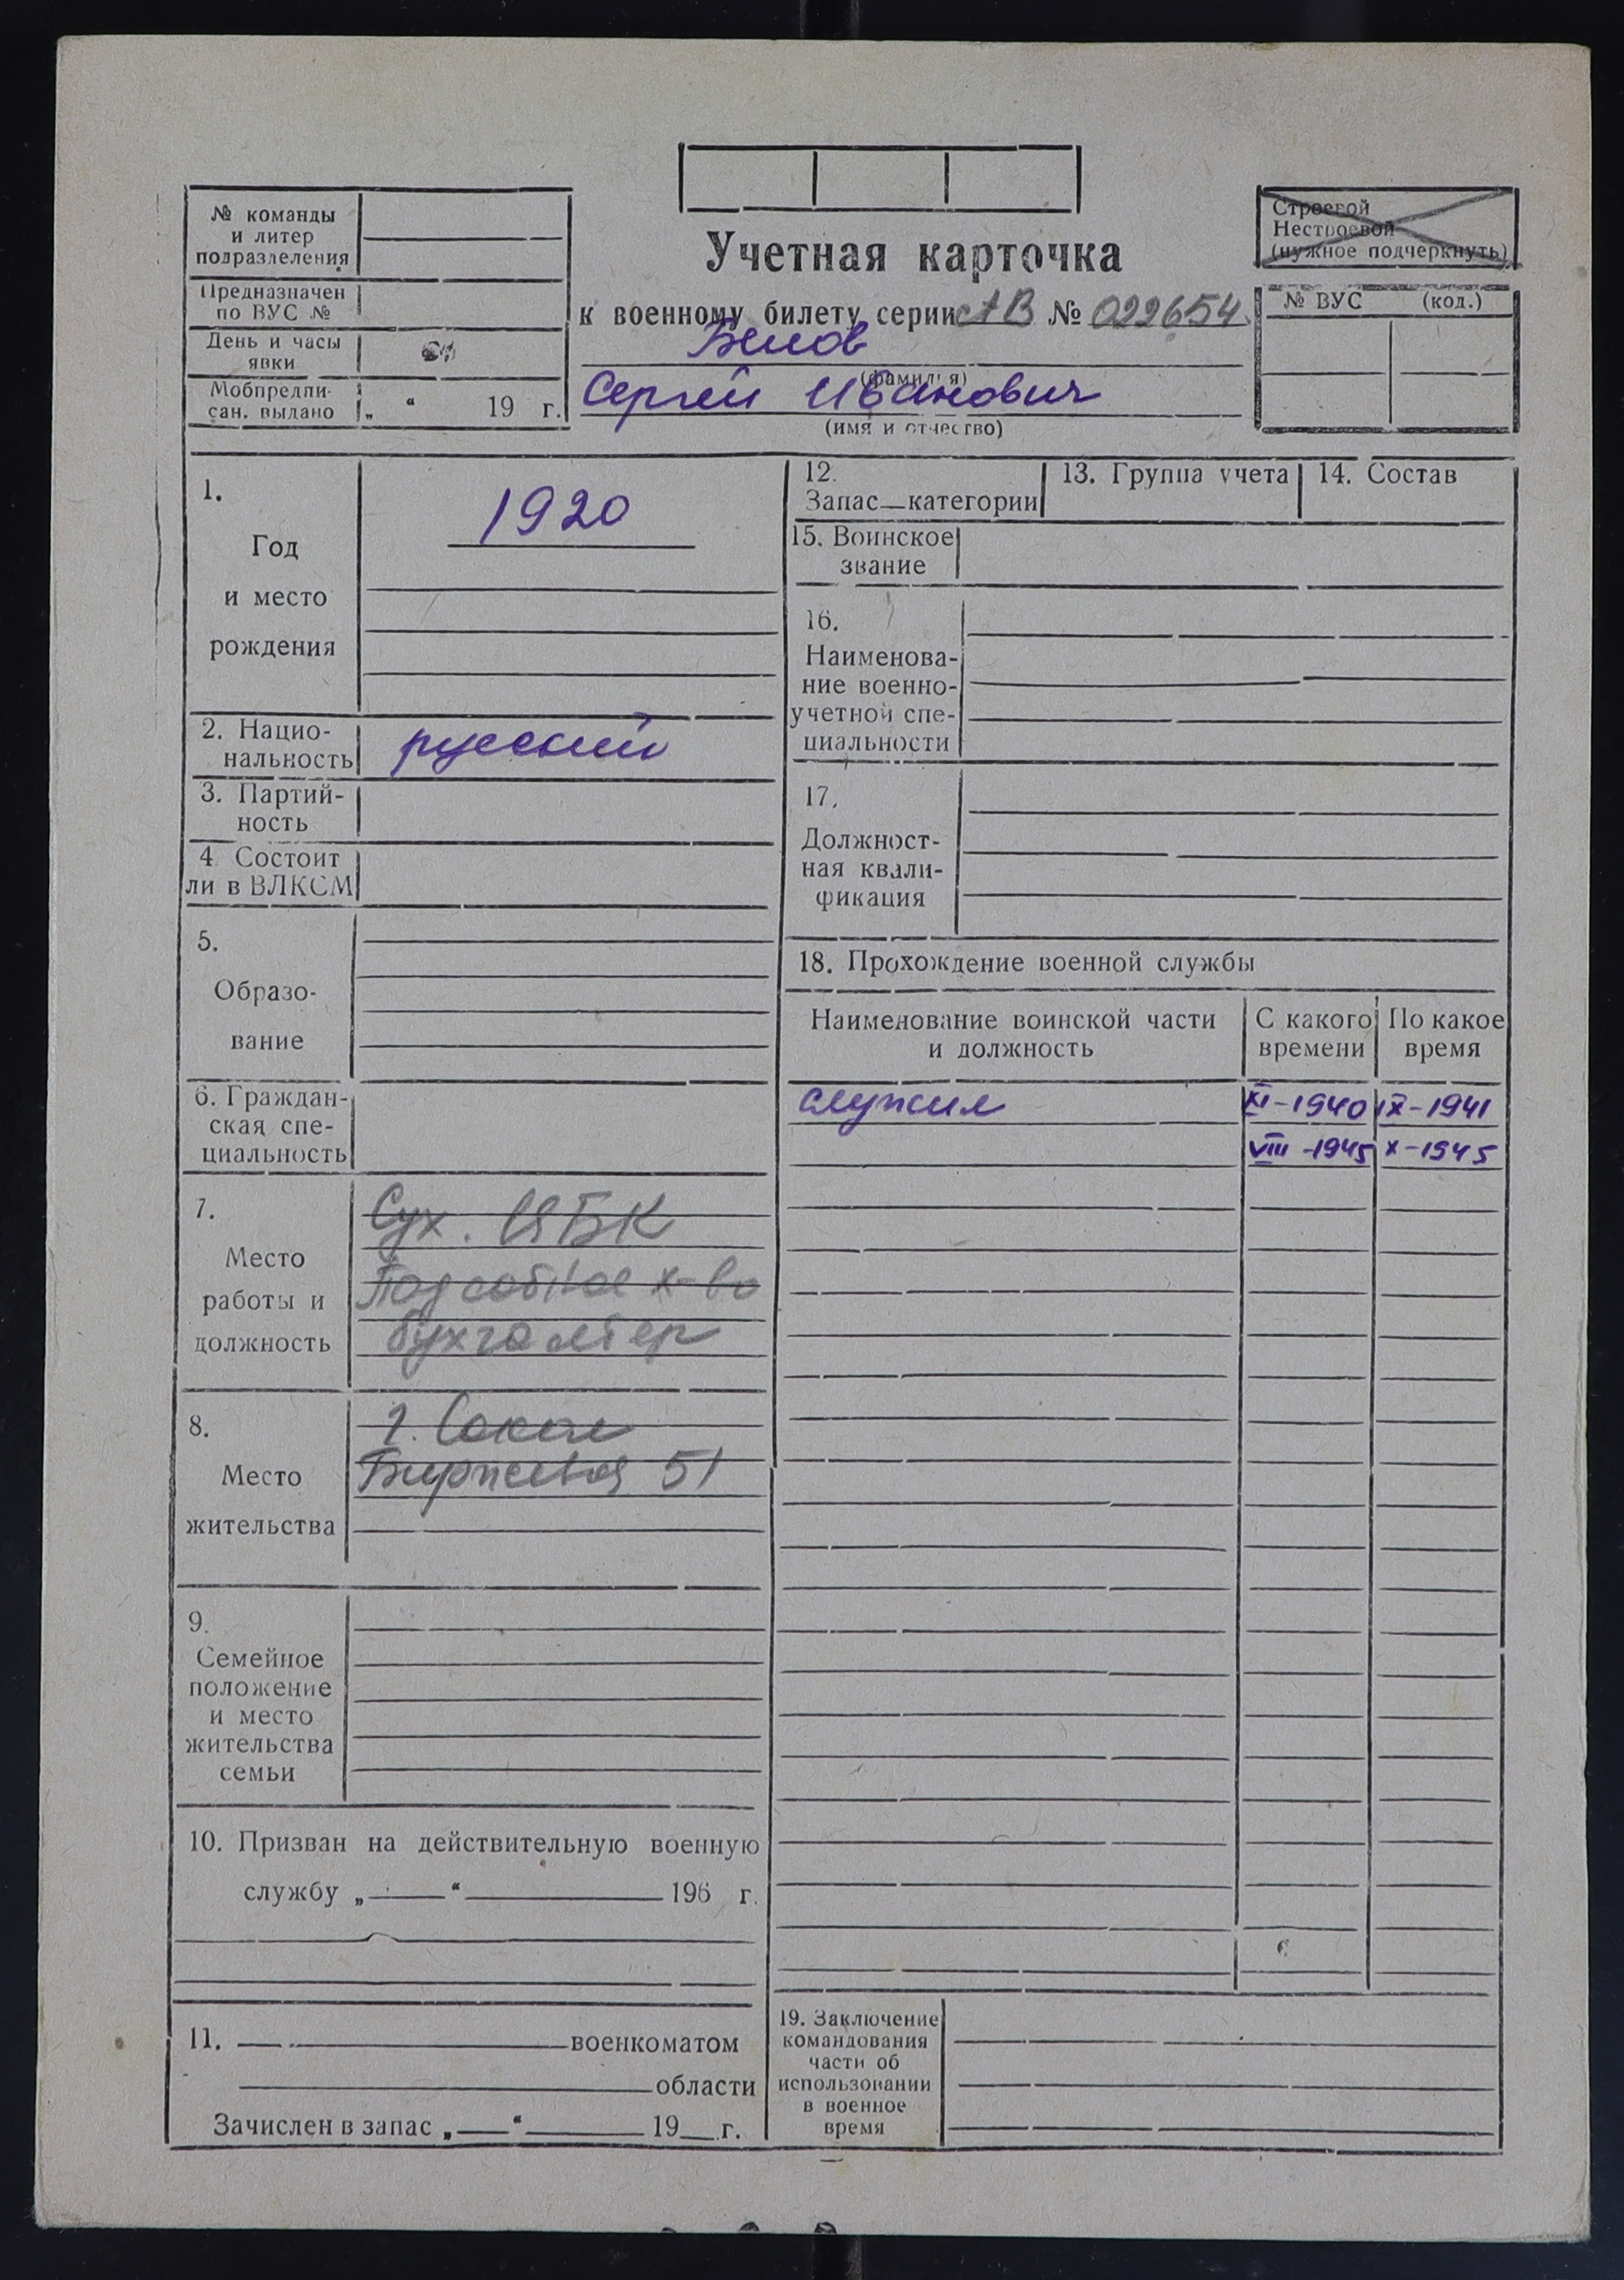 № команды
и литер
подразделения
Предназначен
по ВУС №
День и часы
явки
Мобпредпи-
сан. выдано „ “ 19 г.
Учетная карточка
к военному билету серии АВ № 022654
Белов
(фамилия)
Сергей Иванович
(имя и отчество)
Строевой
Нестроевой
(нужное подчеркнуть)
№ ВУС (код.)
1.
Год
и место
рождения
1920
2. Нацио-
нальность
русский
3. Партий-
ность
4 Состоит
ли в ВЛКСМ
5.
Образо-
вание
6. Граждан-
ская спе-
циальность
7.
Место
работы и
должность
Сух. ЦБК
Подсобное х-во
бухгалтер
8.
Место
жительства
г. Сокол
Биржевая 51
9.
Семейное
положение
и место
жительства
семьи
10. Призван на действительную военную
службу „ “ 196 г.
11. военкоматом
области
Зачислен в запас „ “ 19 г.
12.
Запас—категории
13. Группа учета
14. Состав
15. Воинское
звание
16.
Наименова-
ние военно-
учетной спе-
циальности
17.
Должност-
ная квали-
фикация
18. Прохождение военной службы
Наименование воинской части
и должность
С какого
времени
По какое
время
служил XI-1940 IX-1941
VIII-1945 X-1945
19. Заключение
командования
части об
использовании
в военное
время